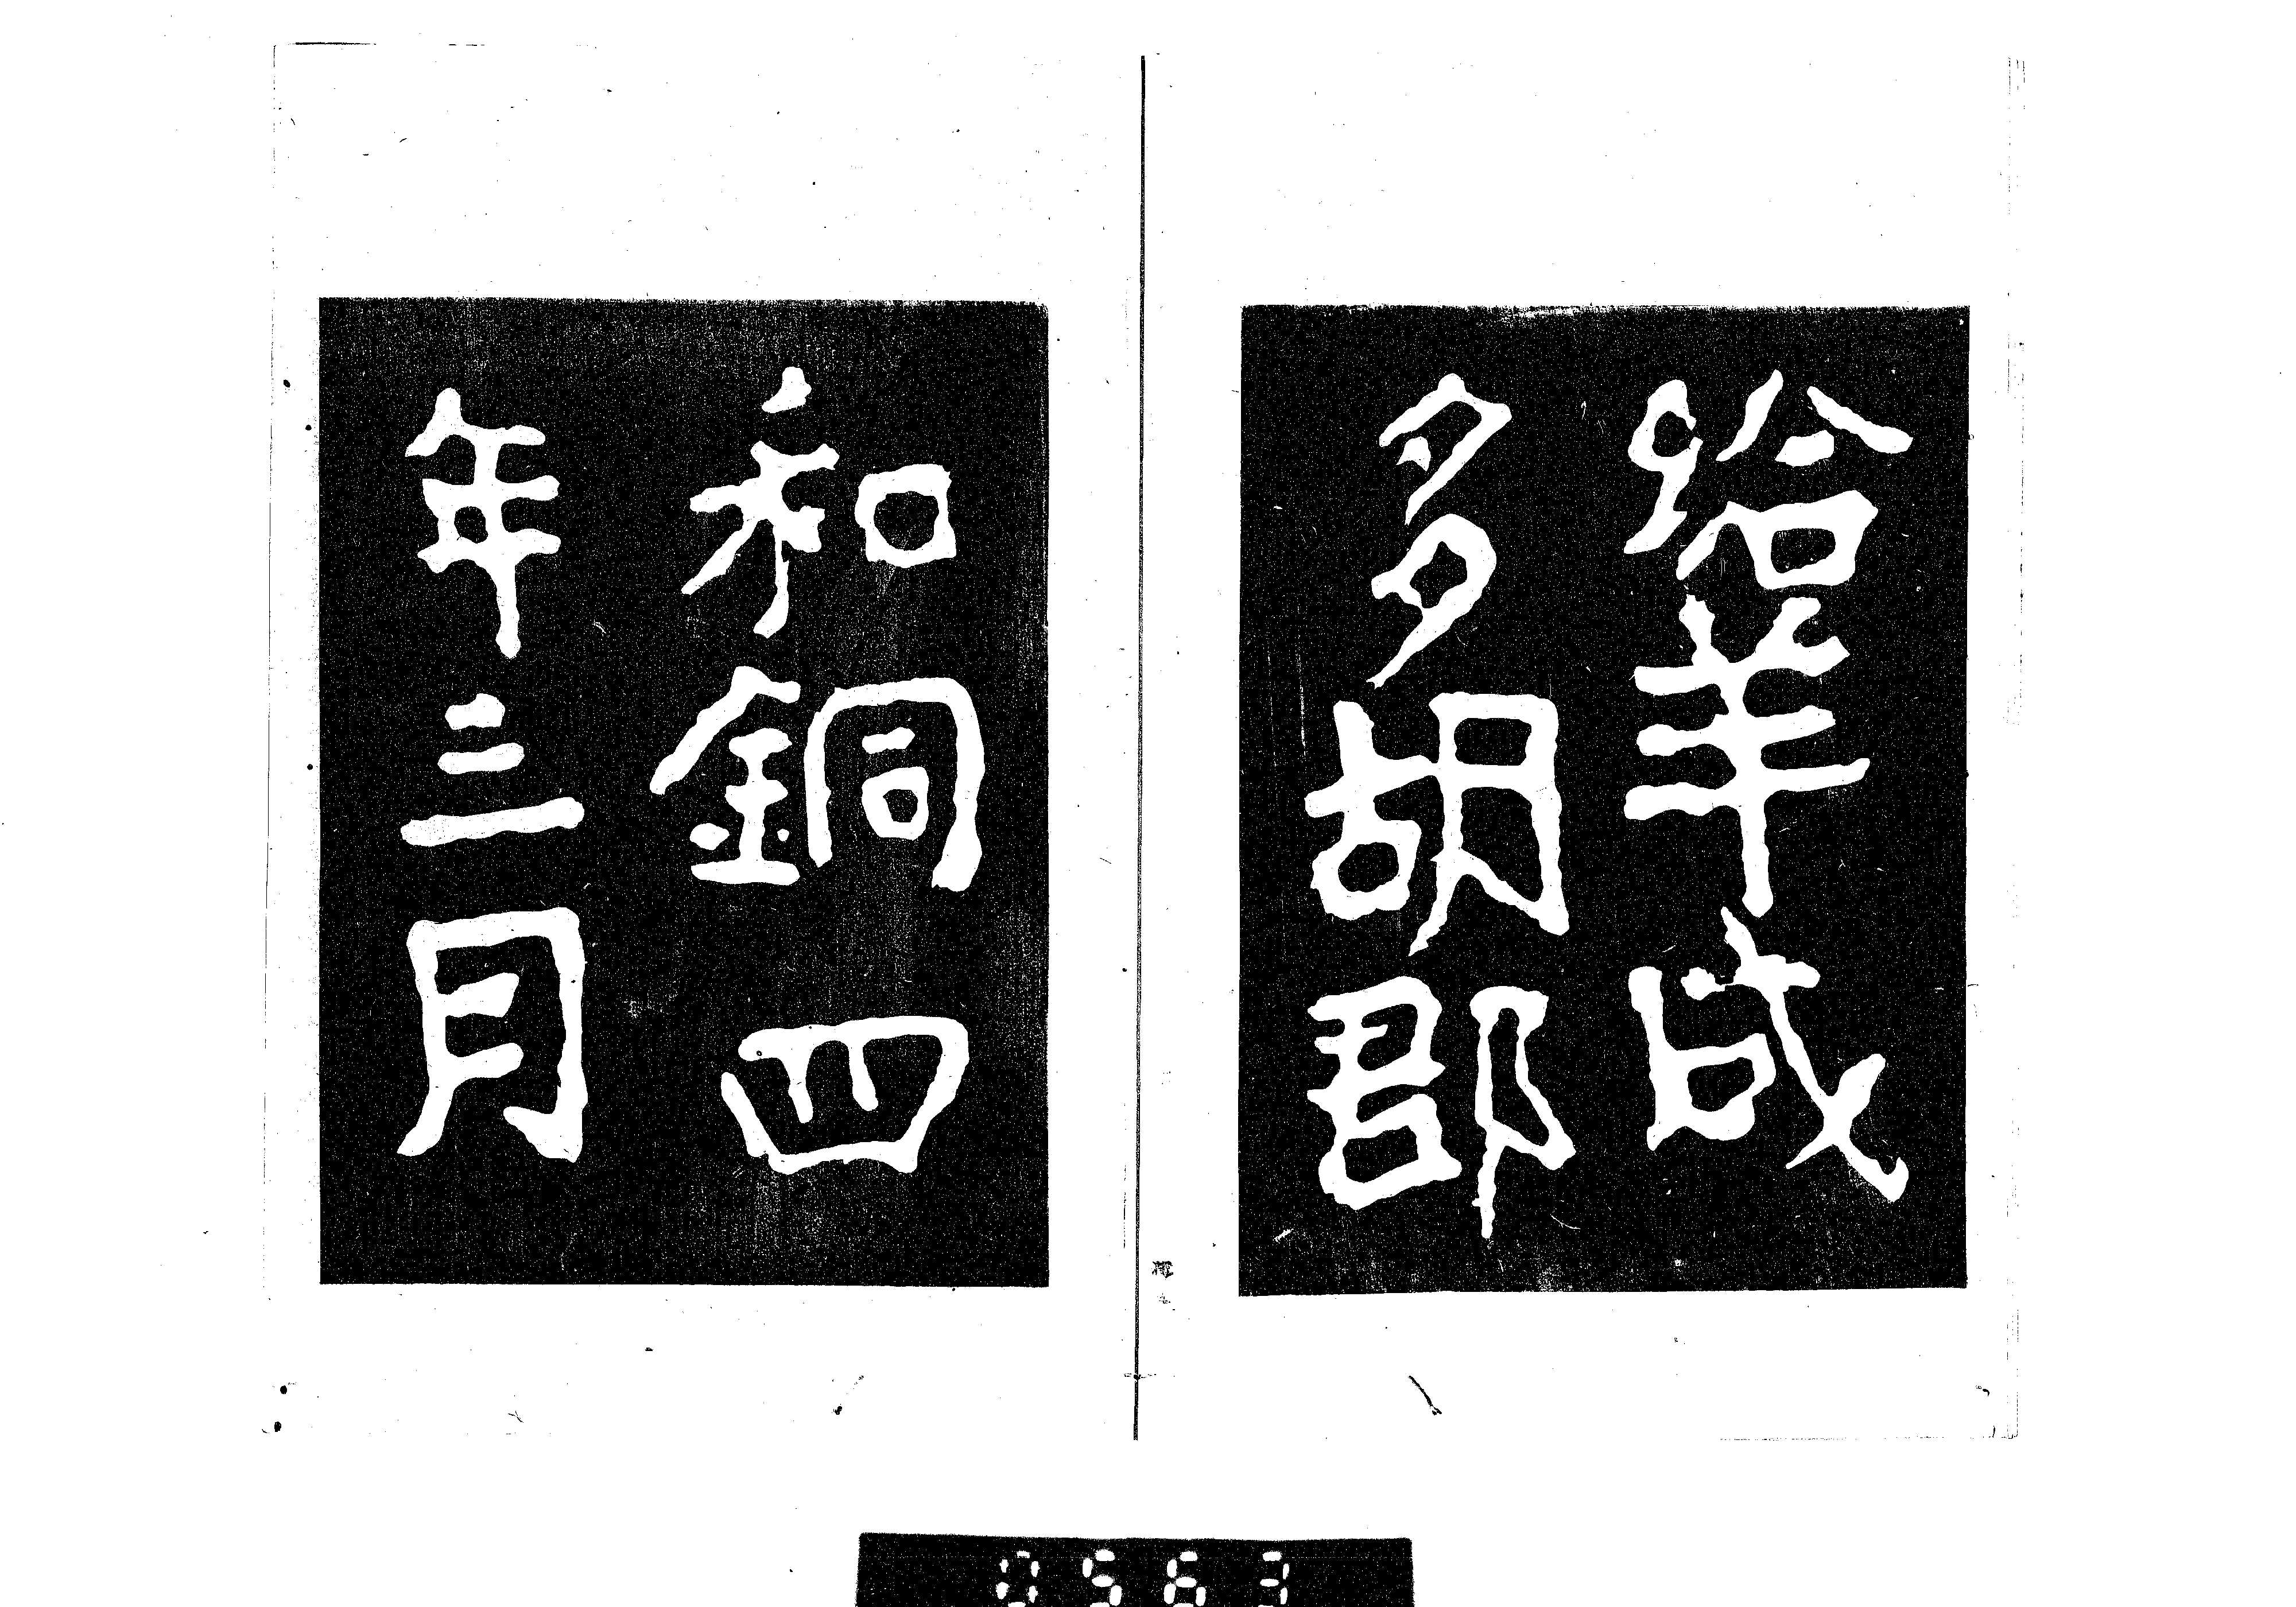 給羊成
多胡郡
和銅四
年三月
0563